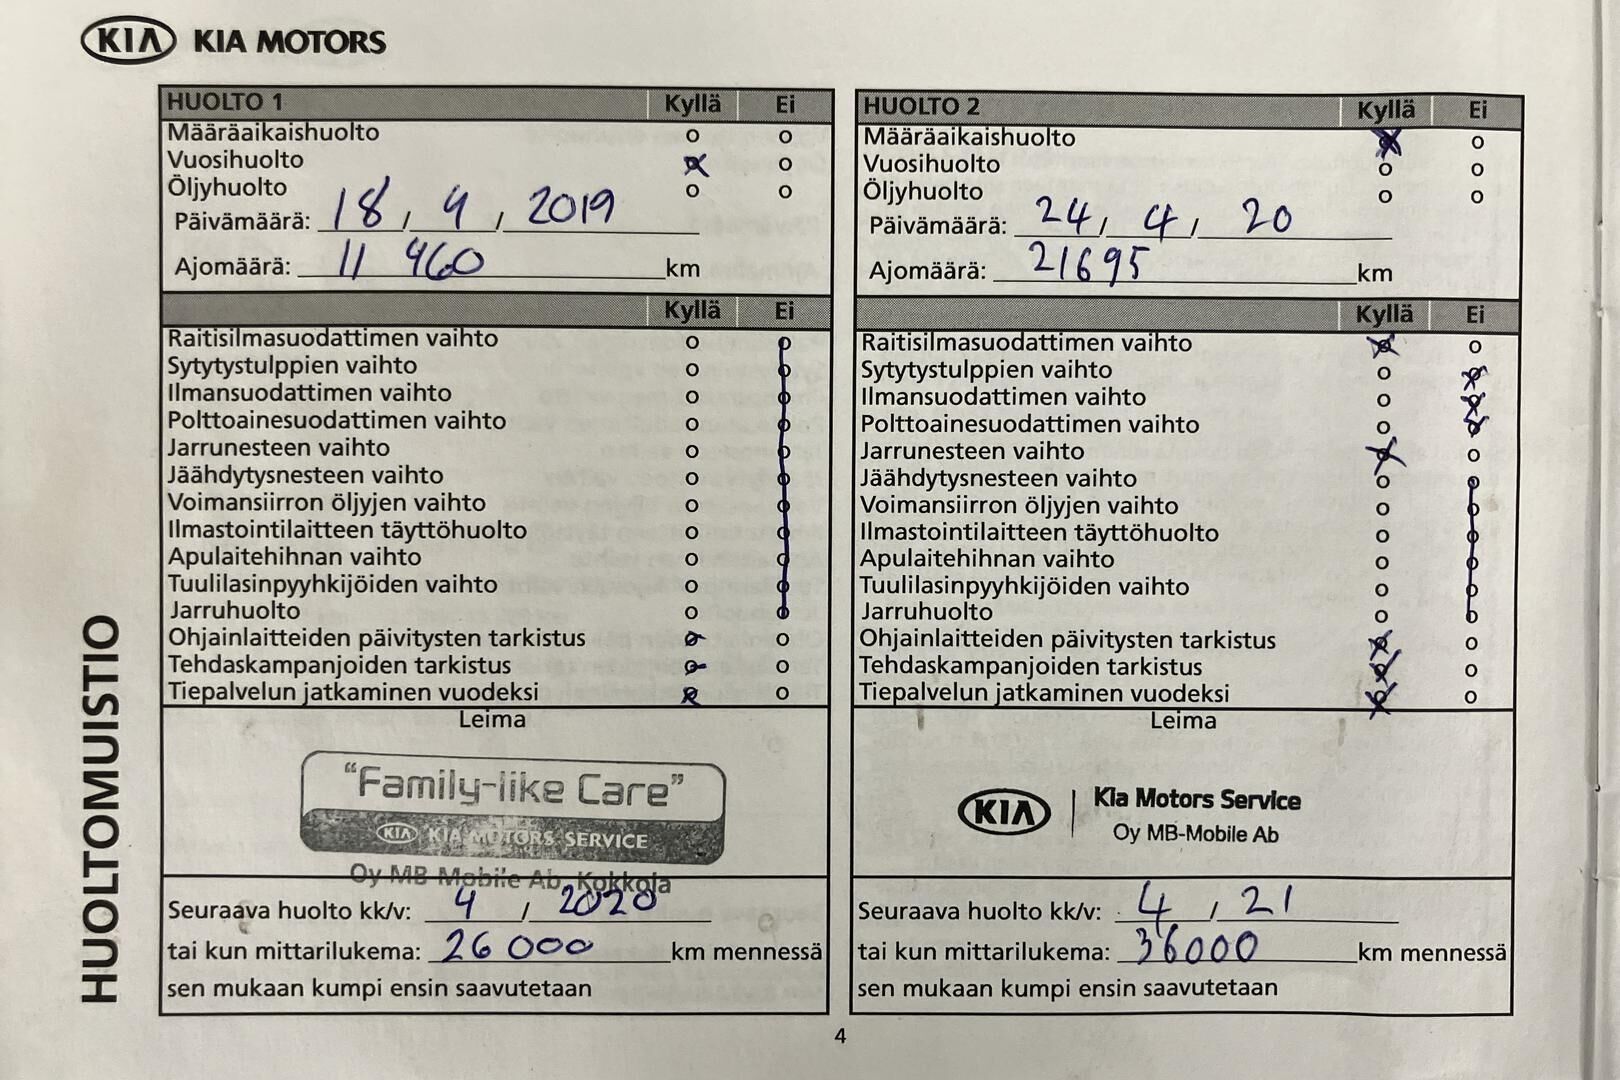 KIA KIA MOTORS
HUOLTOMUISTIO
HUOLTO 1 Kyllä Ei
Määräaikaishuolto o o
Vuosihuolto x o
Öljyhuolto o o
Päivämäärä: 18 / 4 / 2019
Ajomäärä: 11 460 km
Kyllä Ei
Raitisilmasuodattimen vaihto
Sytytystulppien vaihto
Ilmansuodattimen vaihto
Polttoainesuodattimen vaihto
Jarrunesteen vaihto
Jäähdytysnesteen vaihto
Voimansiirron öljyjen vaihto
Ilmastointilaitteen täyttöhuolto
Apulaitehihnan vaihto
Tuulilasinpyyhkijöiden vaihto
Jarruhuolto
Ohjainlaitteiden päivitysten tarkistus
Tehdaskampanjoiden tarkistus
Tiepalvelun jatkaminen vuodeksi
Leima
"Family-like Care"
KIA KIA MOTORS SERVICE
Oy MB-Mobile Ab, Kokkola
Seuraava huolto kk/v: 4 / 2020
tai kun mittarilukema: 26 000 km mennessä
sen mukaan kumpi ensin saavutetaan
HUOLTO 2 Kyllä Ei
Määräaikaishuolto x o
Vuosihuolto o o
Öljyhuolto o o
Päivämäärä: 24 / 4 / 20
Ajomäärä: 21695 km
Kyllä Ei
Raitisilmasuodattimen vaihto
Sytytystulppien vaihto
Ilmansuodattimen vaihto
Polttoainesuodattimen vaihto
Jarrunesteen vaihto
Jäähdytysnesteen vaihto
Voimansiirron öljyjen vaihto
Ilmastointilaitteen täyttöhuolto
Apulaitehihnan vaihto
Tuulilasinpyyhkijöiden vaihto
Jarruhuolto
Ohjainlaitteiden päivitysten tarkistus
Tehdaskampanjoiden tarkistus
Tiepalvelun jatkaminen vuodeksi
Leima
KIA | Kia Motors Service
Oy MB-Mobile Ab
Seuraava huolto kk/v: 4 / 21
tai kun mittarilukema: 36000 km mennessä
sen mukaan kumpi ensin saavutetaan
4